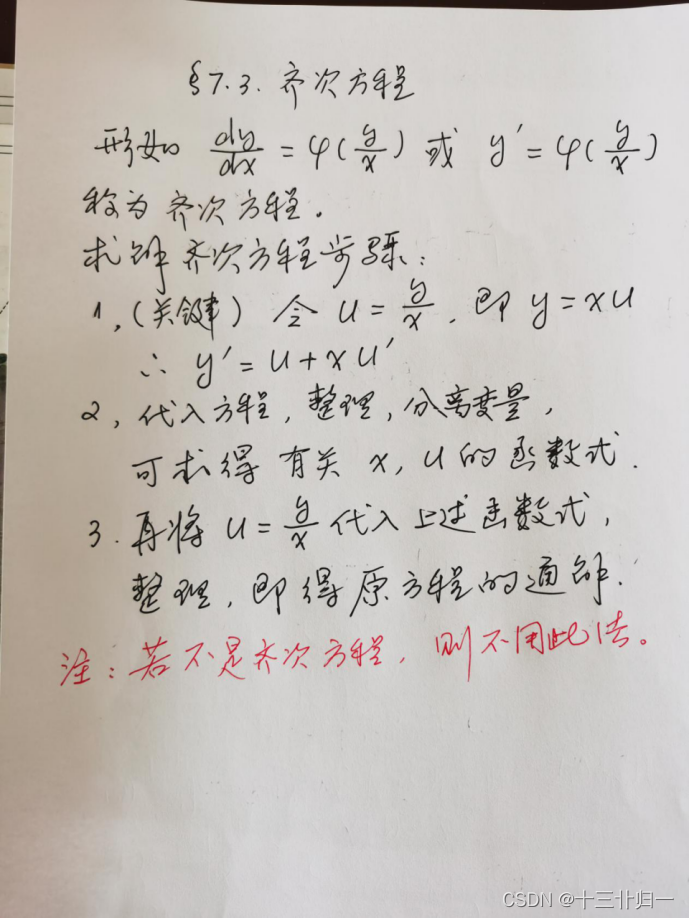 §7.3. 齐次方程
形如 dy/dx = φ(y/x) 或 y′ = φ(y/x)
称为齐次方程.
求解齐次方程步骤:
1, (关键) 令 u = y/x, 即 y = xu
∴ y′ = u + xu′
2, 代入方程, 整理, 分离变量,
可求得有关 x, u 的函数式.
3. 再将 u = y/x 代入上述函数式,
整理, 即得原方程的通解.
注: 若不是齐次方程, 则不用此法。
CSDN @十三卝归一